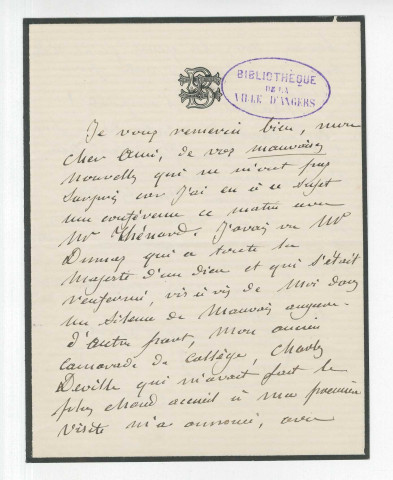 BIBLIOTHÈQUE
DE LA
VILLE D'ANGERS
Je vous remercie bien, mon
cher ami, de vos mauvaises
nouvelles qui ne m'ont pas
surpris car j'ai eu à ce sujet
une conférence ce matin avec
Mr Thénard. J'avais vu Mr
Dumas qui a toute la
majesté d'un dieu et qui s'était
renfermé, vis à vis de moi dans
un silence de mauvais augure.
d'autre part, mon ancien
camarade de collège, Charles
Deville qui m'avait fait le
plus chaud accueil à ma première
visite m'a annoncé, avec